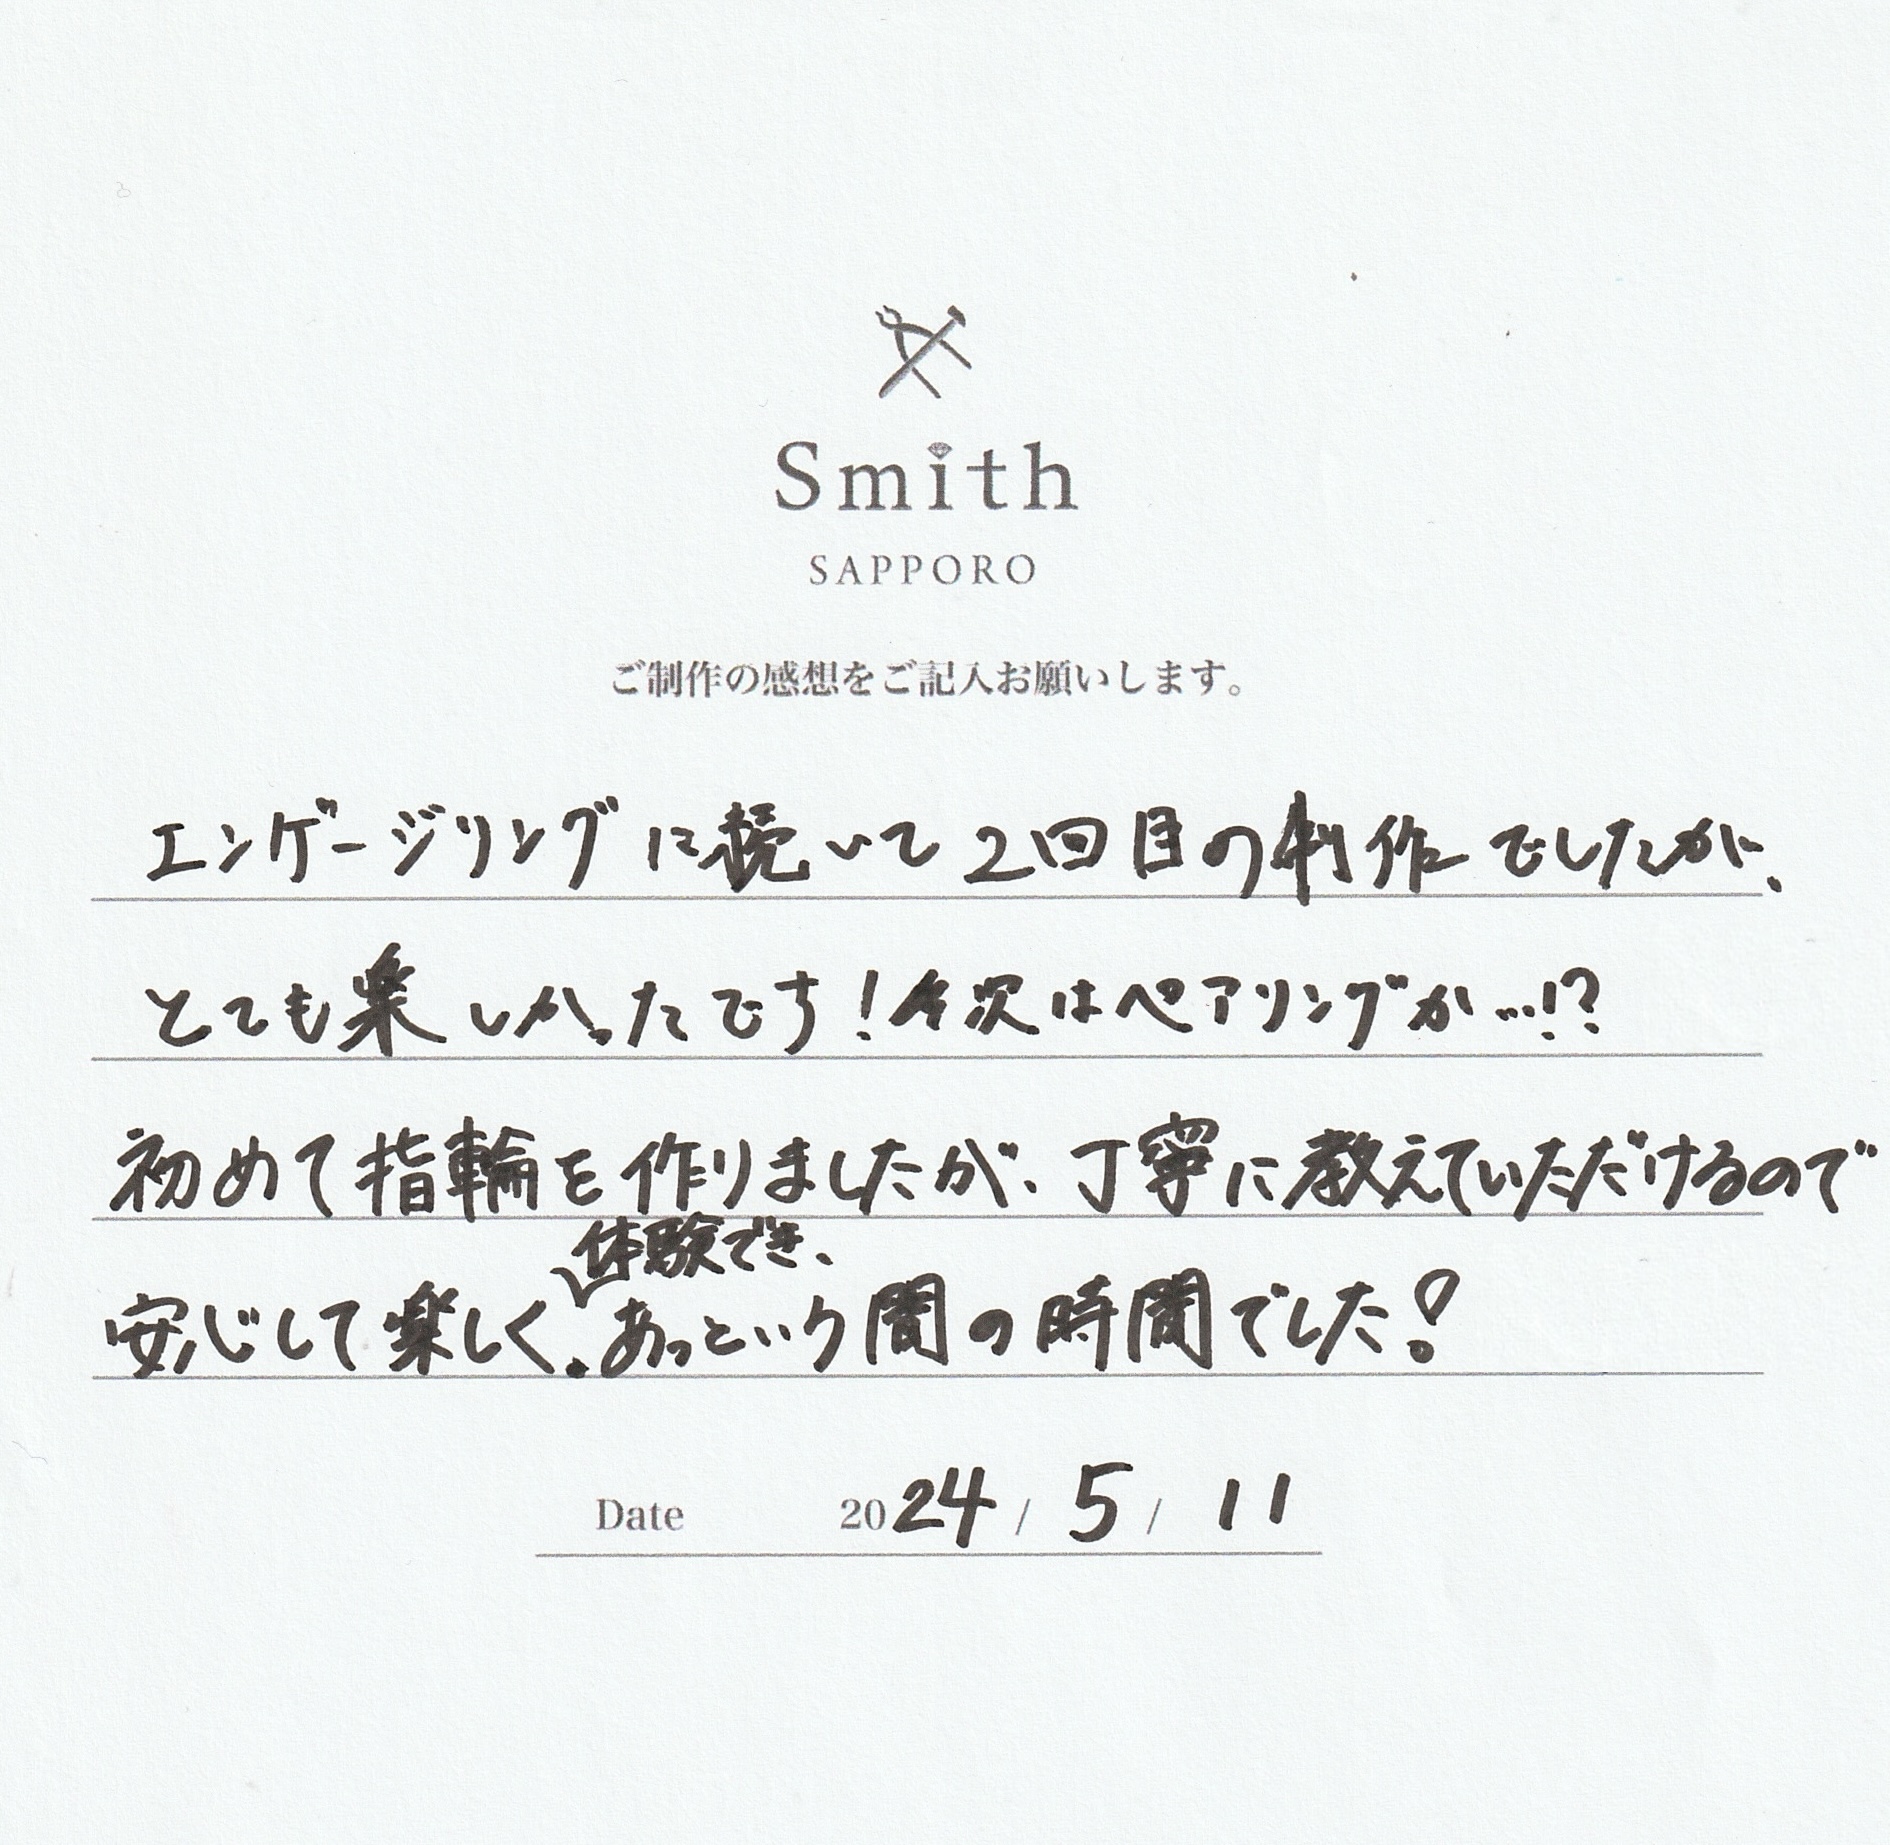 Smith
SAPPORO
ご制作の感想をご記入お願いします。
エンゲージリングに続いて2回目の制作でしたが、
とても楽しかったです！今次はペアリングか…!?
初めて指輪を作りましたが、丁寧に教えていただけるので
体験でき、
安心して楽しく、あっという間の時間でした！
Date 2024 / 5 / 11